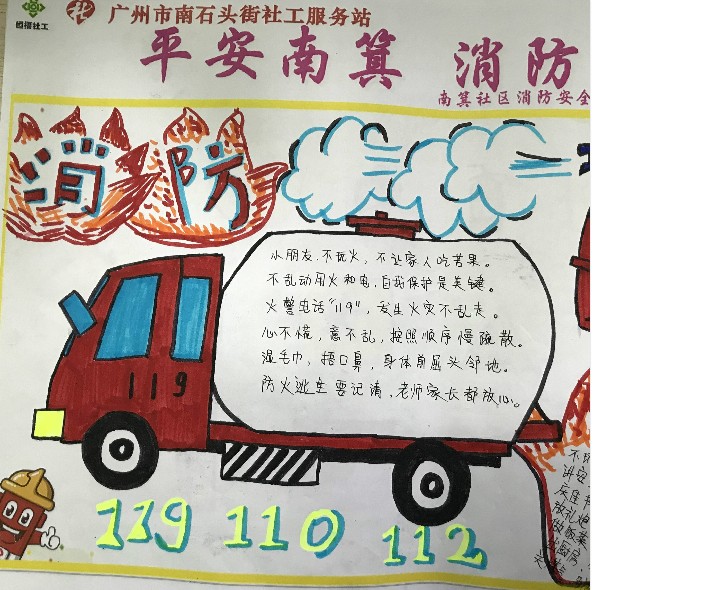 恒福社工
广州市南石头街社工服务站
平安南箕 消防
南箕社区消防安全
消防
小朋友,不玩火,不让家人吃苦果。
不乱动用火和电,自我保护是关键。
火警电话"119",发生火灾不乱走。
心不慌,意不乱,按照顺序慢疏散。
湿毛巾,捂口鼻,身体前屈头邻地。
防火逃生要记清,老师家长都放心。
119
119 110 112
讲安
放礼炮
做饭菜
厨房